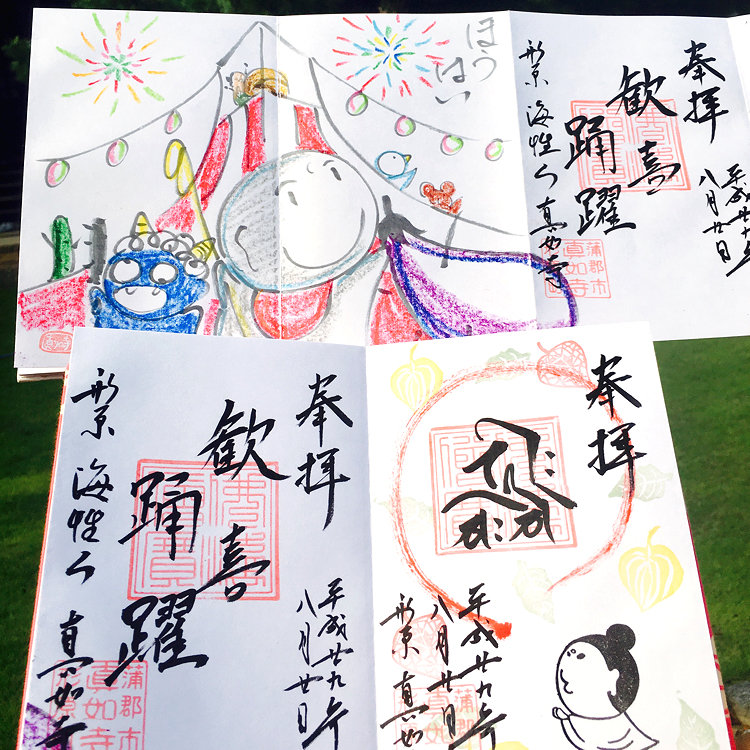 ほう
はい
奉拝
平成廿九年
八月廿日
歓喜
踊躍
形原 海性山 真如寺
蒲郡市
真如寺
奉拝
平成廿九年
八月廿日
歓喜
踊躍
形原 海性山 真如寺
蒲郡市
真如寺
形原
奉拝
平成廿九年
八月廿日
形原 真如